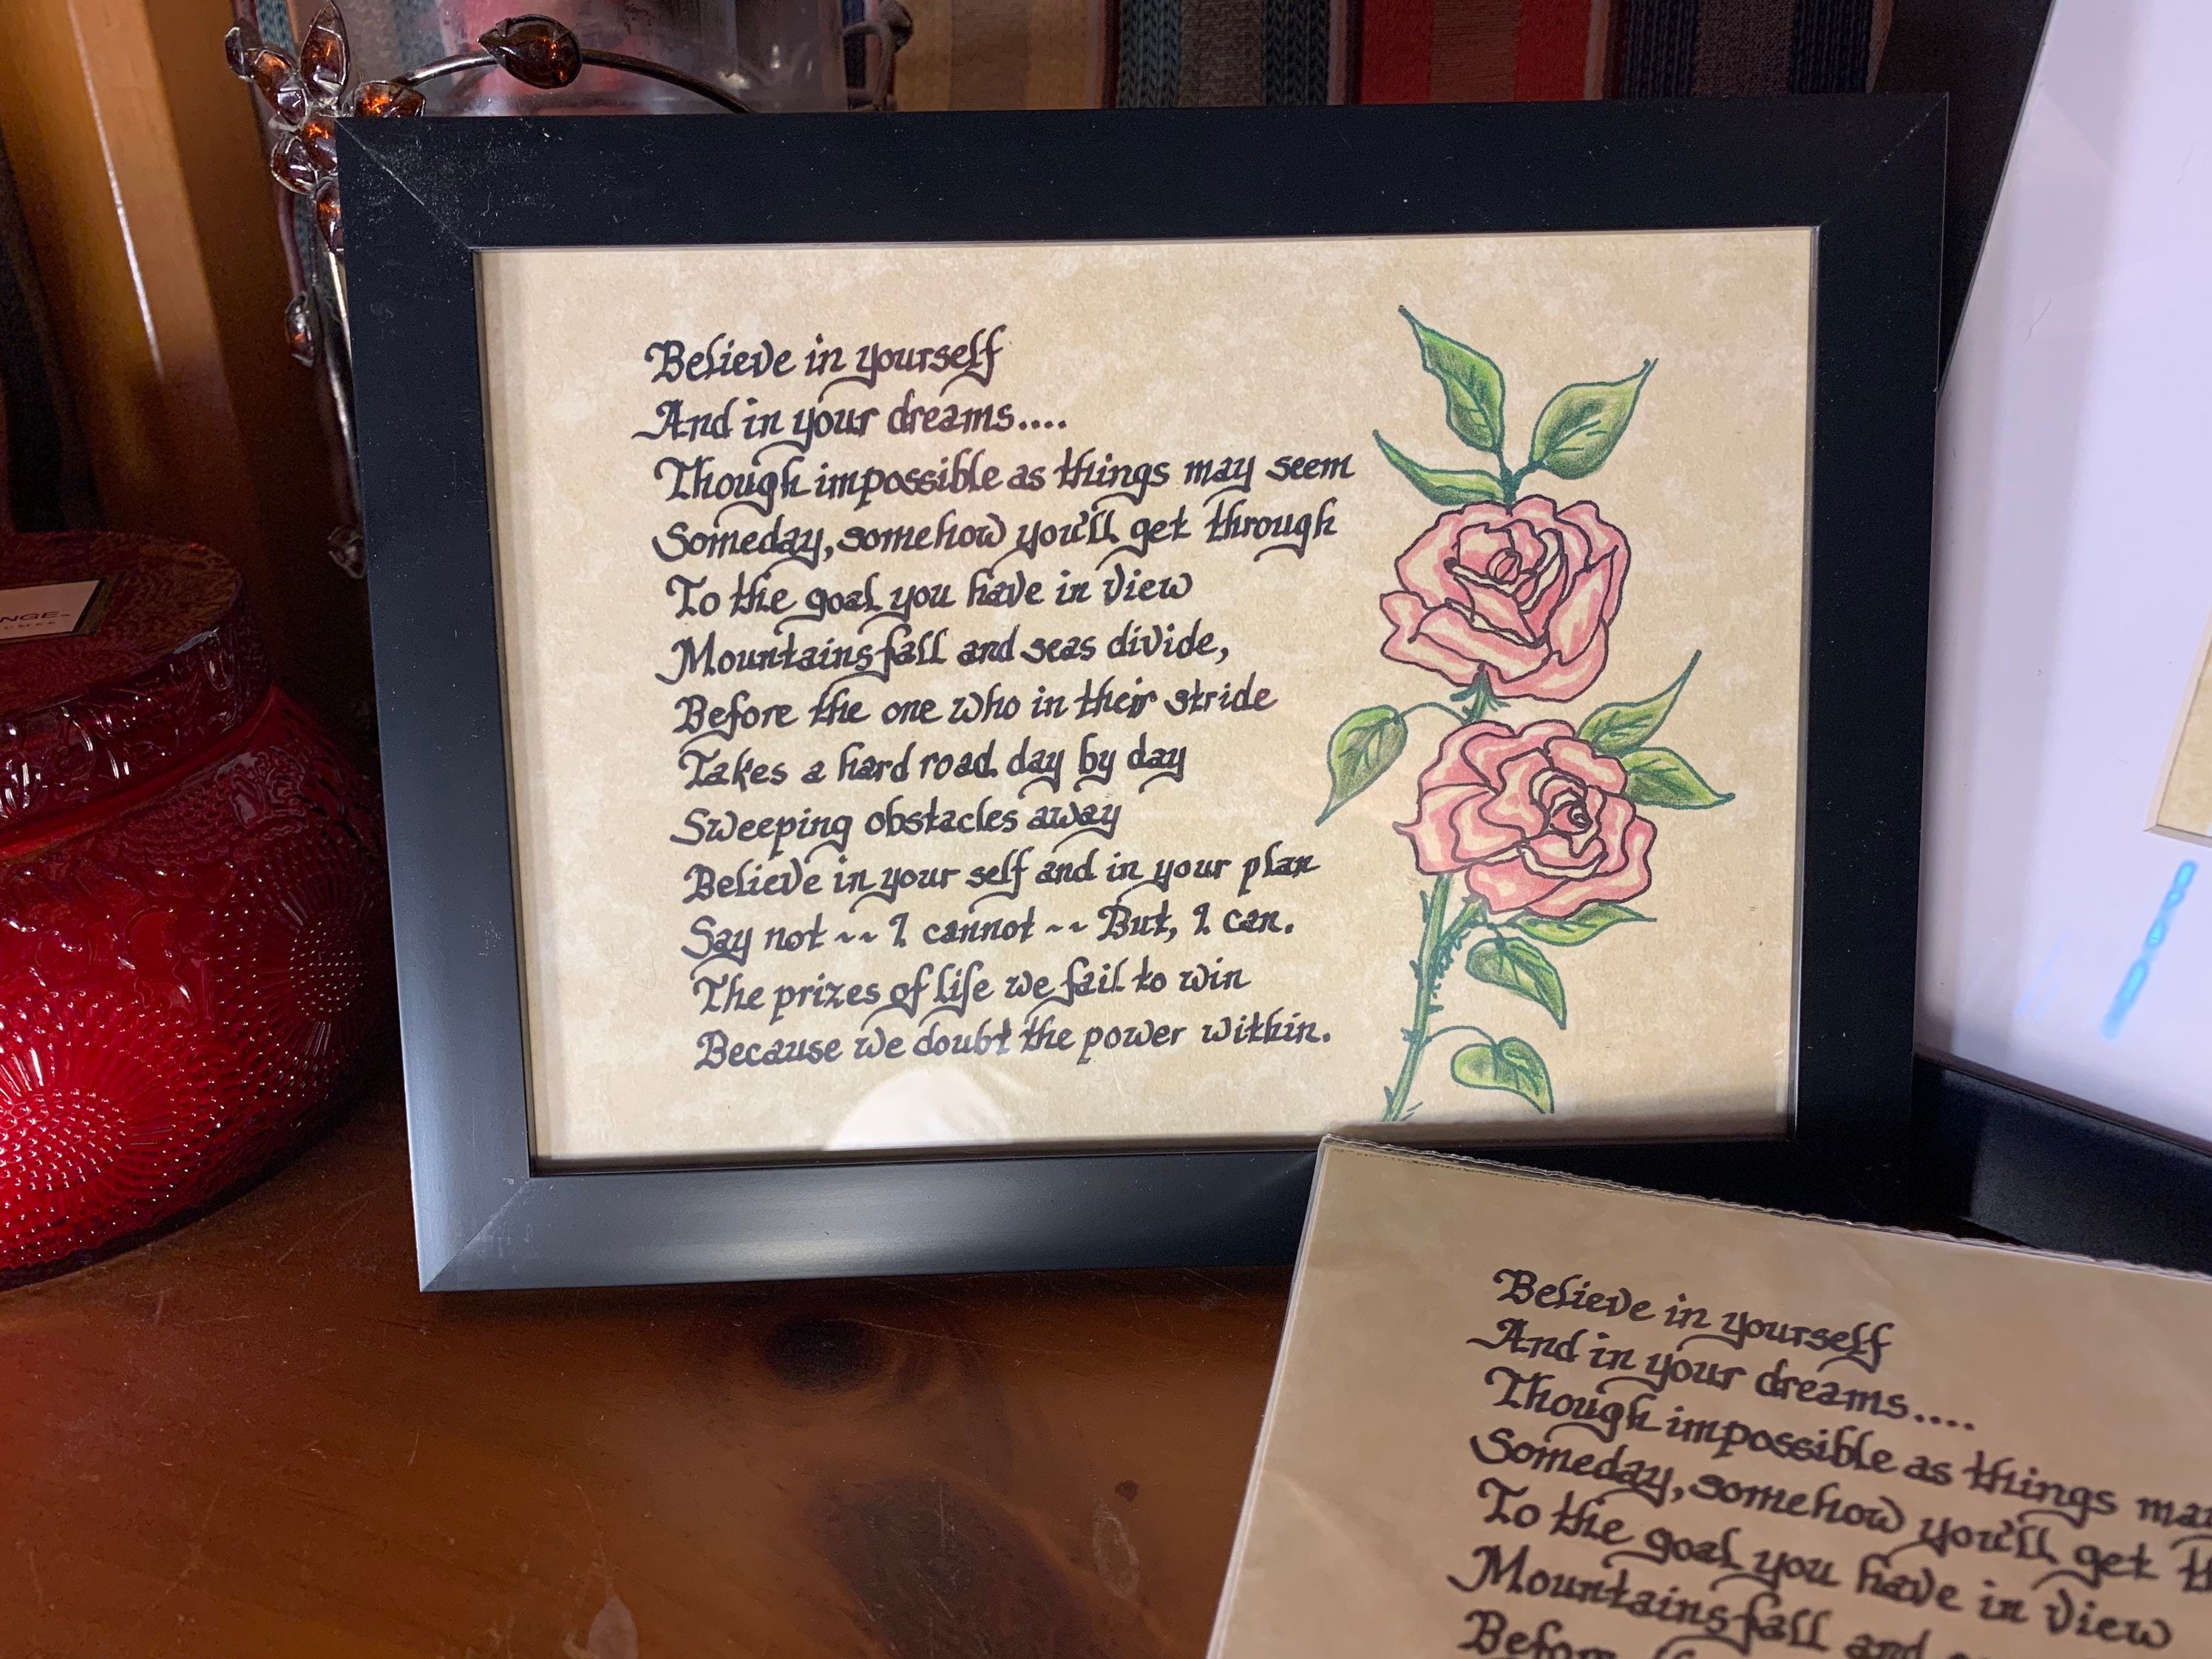 Believe in yourself
And in your dreams....
Though impossible as things may seem
Someday, somehow you'll get through
To the goal you have in view
Mountains fall and seas divide,
Before the one who in their stride
Takes a hard road day by day
Sweeping obstacles away
Believe in your self and in your plan
Say not ~~ I cannot ~~ But, I can.
The prizes of life we fail to win
Because we doubt the power within.
NGE
Believe in yourself
And in your dreams....
Though impossible as things
Someday, somehow you'll get
To the goal you have in view
Mountains fall and